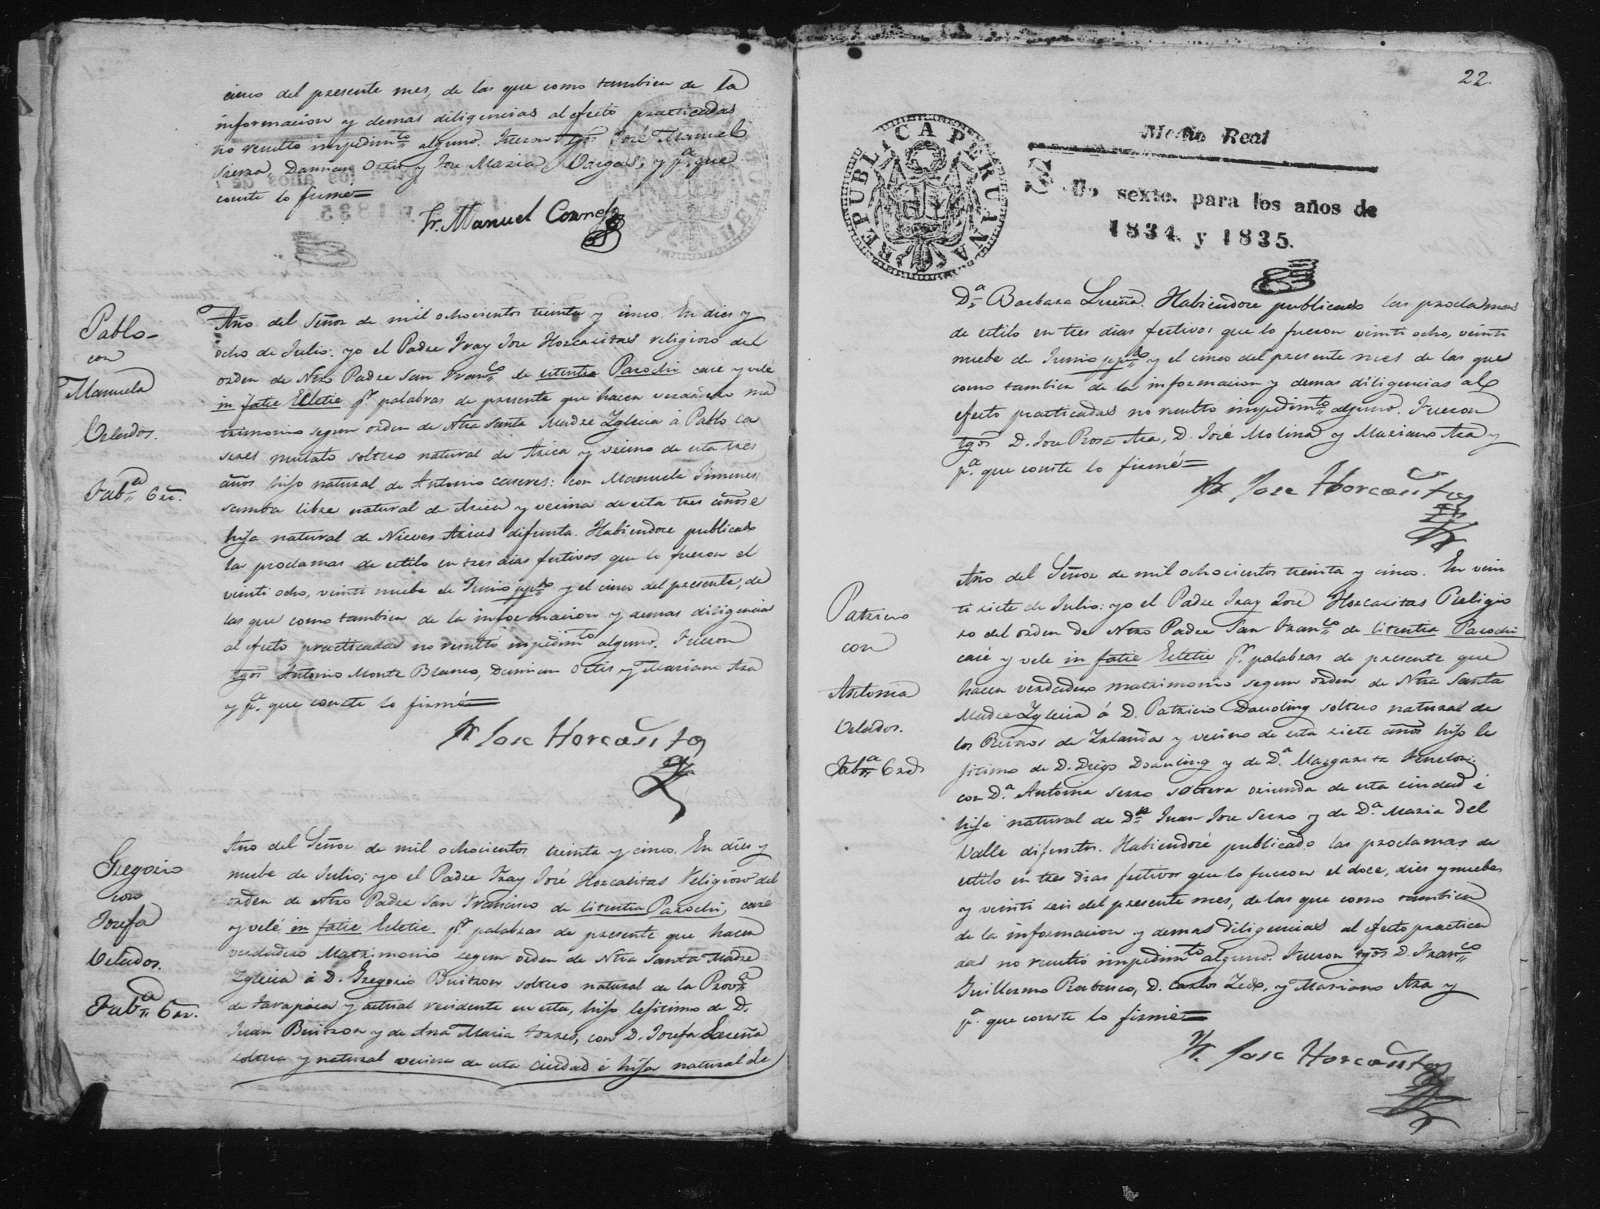 cinco del presente mes, de las que como tambien de la
informacion y demas diligencias al efecto practicadas
no resultó impedimto alguno. Fueron tgos José Manuel
Sierra, Damian Ortis y Jose Maria Vargas, y pa. que
conste lo firmé
Fr. Manuel
Pablo
con
Manuela
Velados.
Fabca 6 rr.
Año del Señor de mil ochocientos treinta y cinco. En dies y
ocho de Julio: yo el Padre Fray Jose Horcasitas religioso del
orden de Ntro Padre San Franco de licentia Parochi casé y velé
in facie Eclecie pr. palabras de presente que hacen verdadero ma
trimonio segun orden de Ntra Santa Madre Yglecia á Pablo Ca
seres mulato soltero natural de Arica y vecino de esta tres
años hijo natural de Antonio caseres: con Manuela Jimenes
samba libre natural de Arica y vecina de esta tres años é
hija natural de Nieves Arias difunta. Habiendose publicado
la proclamas de estilo en tres dias festivos que lo fueron el
veinti ocho, veinti nuebe de Junio ppdo y el cinco del presente, de
las que como tambien de la informacion y demas diligencias
al efecto practicadas no resultó impedimto alguno. Fueron
tgos Antonio Monte Blanco, Damian Ortis y Mariano Ara
y pa. que conste lo firmé
Fr. Jose Horcasitas
Gregorio
con
Josefa
Velados.
Fabca 6 rr.
Año del Señor de mil ochocientos treinta y cinco. En dies y
nuebe de Julio; yo el Padre Fray José Horcasitas Religioso del
orden de Ntro Padre San Francisco de licentia Parochi, casé
y velé in facie Eclecie pr. palabras de presente que hacen
verdadero Matrimonio segun orden de Ntra Santa Madre
Yglecia á D. Gregorio Buitron soltero natural de la Prova
de tarapaca y actual recidente en esta, hijo lejitimo de D.
Juan Buitron y de Ana Maria torres, con D. Josefa Lueña
soltera y natural vecina de esta ciudad é hija natural de
22.
REPUBLICA PERUANA
Medio Real
Sello sexto. para los años de
1834. y 1835.
Da Barbara Lueña. Habiendose publicado las proclamas
de estilo en tres dias festivos que lo fueron veinti ocho, veinti
nuebe de Junio ppdo y el cinco del presente mes de las que
como tambien de la informacion y demas diligencias al
efecto practicadas no resultó impedimto alguno. Fueron
tgos D. Jose Rosa Ara, D. José Molina y Mariano Ara y
pa. que conste lo firmé
Fr. Jose Horcasitas
Patricio
con
Antonia
Velados.
Fabca 6 rr
Año del Señor de mil ochocientos treinta y cinco. En vein
ti siete de Julio: yo el Padre Fray José Horcasitas Religio
so del orden de Ntro Padre San Franco de licentia Parochi
casé y velé in facie Eclecie pr. palabras de presente que
hacen verdadero matrimonio segun orden de Ntra Santa
Madre Yglecia á D. Patricio Dauoling soltero natural de
los Reinos de Irlanda y vecino de esta siete años hijo le
jitimo de D. Diego Dauling y de Da. Margarita
con Da. Antonia serro soltera oriunda de esta ciudad é
hija natural de Dn Juan Jose Serro y de Da. Maria del
Valle difuntos. Habiendosé publicado las proclamas de
estilo en tres dias festivos que lo fueron el doce, dies y nuebe
y veinti seis del presente mes, de las que como tambien
de la informacion y demas diligencias al efecto practica
das no resultó impedimto alguno. Fueron tgos D. Franco
Guillermo, D. Carlos, y Mariano Ara y
pa. que conste lo firmé
Fr. Jose Horcasitas